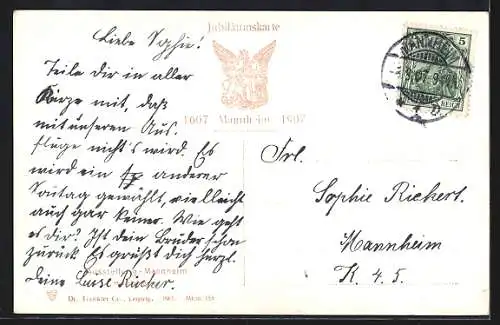 Jubiläumskarte
1607 Mannheim 1907
MANNHEIM
5
Liebe Sophie!
Teile dir in aller
Kürze mit, daß
mit unseren Aus-
flüge nicht's wird. Es
wird ein anderer
Sontag gewählt, vielleicht
auch gar keiner. Wie geht
es dir? Ist dein Bruder schon
zurück. Es grüßt dich herzl.
deine Luise Rucher.
Frl.
Sophie Richert.
Mannheim
K. 4. 5.
Ausstellung-Mannheim
Dr. Trenkler Co., Leipzig. 1907.